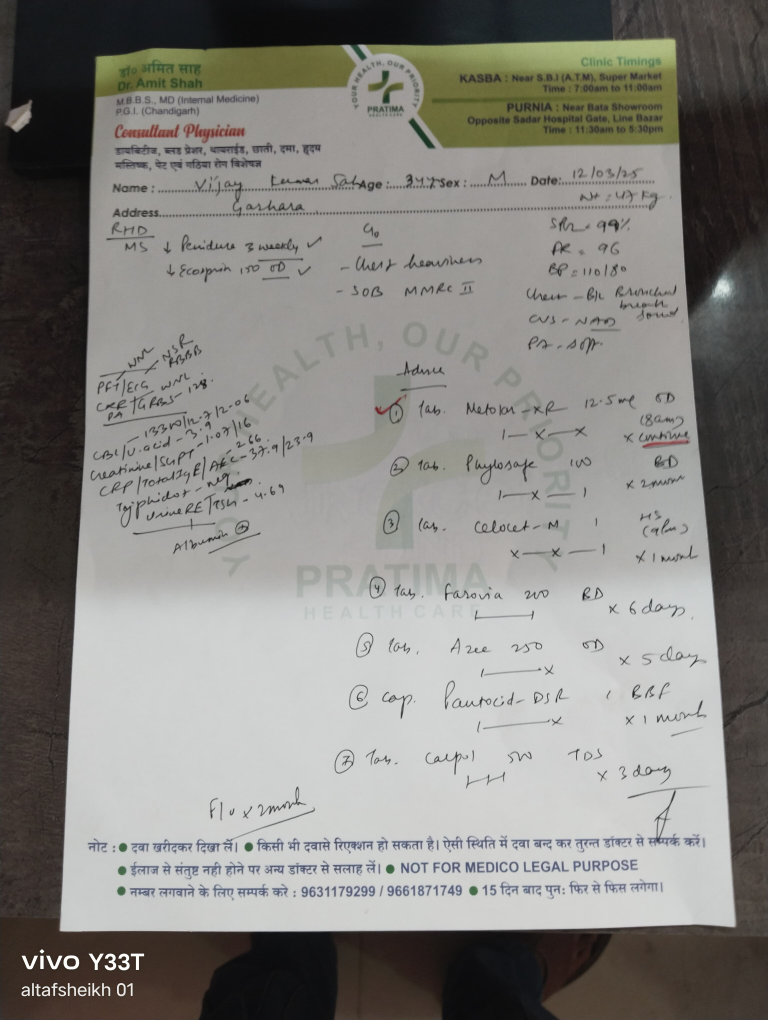 डॉ० अमित साह
Dr. Amit Shah
M.B.B.S., MD (Internal Medicine)
P.G.I. (Chandigarh)
Consultant Physician
डायबिटीज, ब्लड प्रेशर, थायराईड, छाती, दमा, हृदय
मस्तिष्क, पेट एवं गठिया रोग विशेषज्ञ
YOUR HEALTH, OUR PRIORITY
PRATIMA
HEALTH CARE
Clinic Timings
KASBA : Near S.B.I (A.T.M), Super Market
Time : 7:00am to 11:00am
PURNIA : Near Bata Showroom
Opposite Sadar Hospital Gate, Line Bazar
Time : 11:30am to 5:30pm
Name : Vijay Kumar Sah Age : 34y Sex : M Date: 12/03/25
Wt = 47 kg
Address Garhara
RHD
MS ↓ Penidure 3 weekly ✓
↓ Ecosprin 150 OD ✓
C/o
- Chest heaviness
- SOB MMRC II
SPO2 = 99%
PR = 96
BP = 110/80
Chest - B/L Bronchial breath sound
CVS - NAD
PA - Soft
WNL NSR RBBB
PFT/ECG WNL
CXR PA/GRBS - 128
CBC/U.acid - 3.9
Creatinine/SGPT - 1.07/16
CRP/Total IgE/AEC - 37.9/23.9
266
Typhidot - neg
Urine RE/TSH - 4.69
Albumin (+)
YOUR HEALTH, OUR PRIORITY
PRATIMA
HEALTH CARE
Advice
① Tab. Metolar-XR 12.5 mg OD
(8am)
1 — x — x x continue
② Tab. Phylosafe 100 BD
1 — x — 1 x 2 month
③ Tab. Celocet-M 1 HS
(9pm)
x — x — 1 x 1 month
④ Tab. Farovia 200 BD
x 6 days
⑤ Tab. Azee 250 OD
x 5 days
⑥ Cap. Pantocid-DSR 1 BBF
x 1 month
⑦ Tab. Calpol 500 TDS
x 3 days
F/U x 2 month
नोट : ● दवा खरीदकर दिखा लें। ● किसी भी दवासे रिएक्शन हो सकता है। ऐसी स्थिति में दवा बन्द कर तुरन्त डॉक्टर से सम्पर्क करें।
● ईलाज से संतुष्ट नही होने पर अन्य डॉक्टर से सलाह लें। ● NOT FOR MEDICO LEGAL PURPOSE
● नम्बर लगवाने के लिए सम्पर्क करे : 9631179299 / 9661871749 ● 15 दिन बाद पुनः फिर से फिस लगेगा।
vivo Y33T
altafsheikh 01